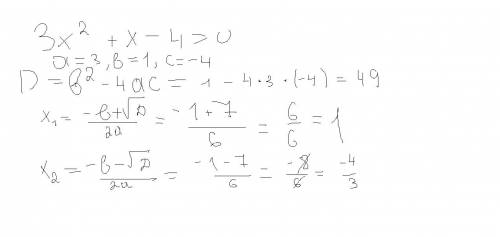 3x² + x - 4 > 0
a = 3, b = 1, c = -4
D = b² - 4ac = 1 - 4 * 3 * (-4) = 49
x₁ = (-b + √D)/2a = (-1 + 7)/6 = 6/6 = 1
x₂ = (-b - √D)/2a = (-1 - 7)/6 = -8/6 = -4/3